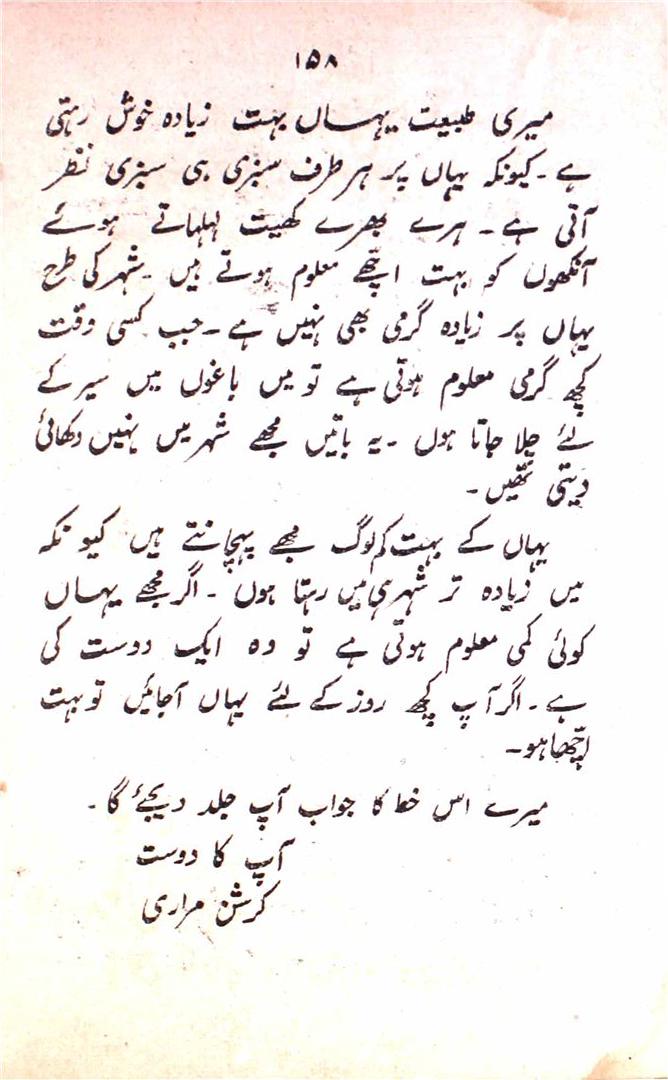 ۱۵۸
میری طبیعت یہاں بہت زیادہ خوش رہتی
ہے۔ کیونکہ یہاں پر ہر طرف سبزی ہی سبزی نظر
آتی ہے۔ ہرے بھرے کھیت لہلہاتے ہوئے
آنکھوں کو بہت اچھے معلوم ہوتے ہیں۔ شہر کی طرح
یہاں پر زیادہ گرمی بھی نہیں ہے۔ جب کسی وقت
کچھ گرمی معلوم ہوتی ہے تو میں باغوں میں سیر کے
لئے چلا جاتا ہوں۔ یہ باتیں مجھے شہر میں نہیں دکھائی
دیتی تھیں۔
یہاں کے بہت کم لوگ مجھے پہچانتے ہیں کیونکہ
میں زیادہ تر شہر ہی میں رہتا ہوں۔ اگر مجھے یہاں
کوئی کمی معلوم ہوتی ہے تو وہ ایک دوست کی
ہے۔ اگر آپ کچھ روز کے لئے یہاں آجائیں تو بہت
اچھا ہو۔
میرے اس خط کا جواب آپ جلد دیجئے گا۔
آپ کا دوست
کرشن مراری